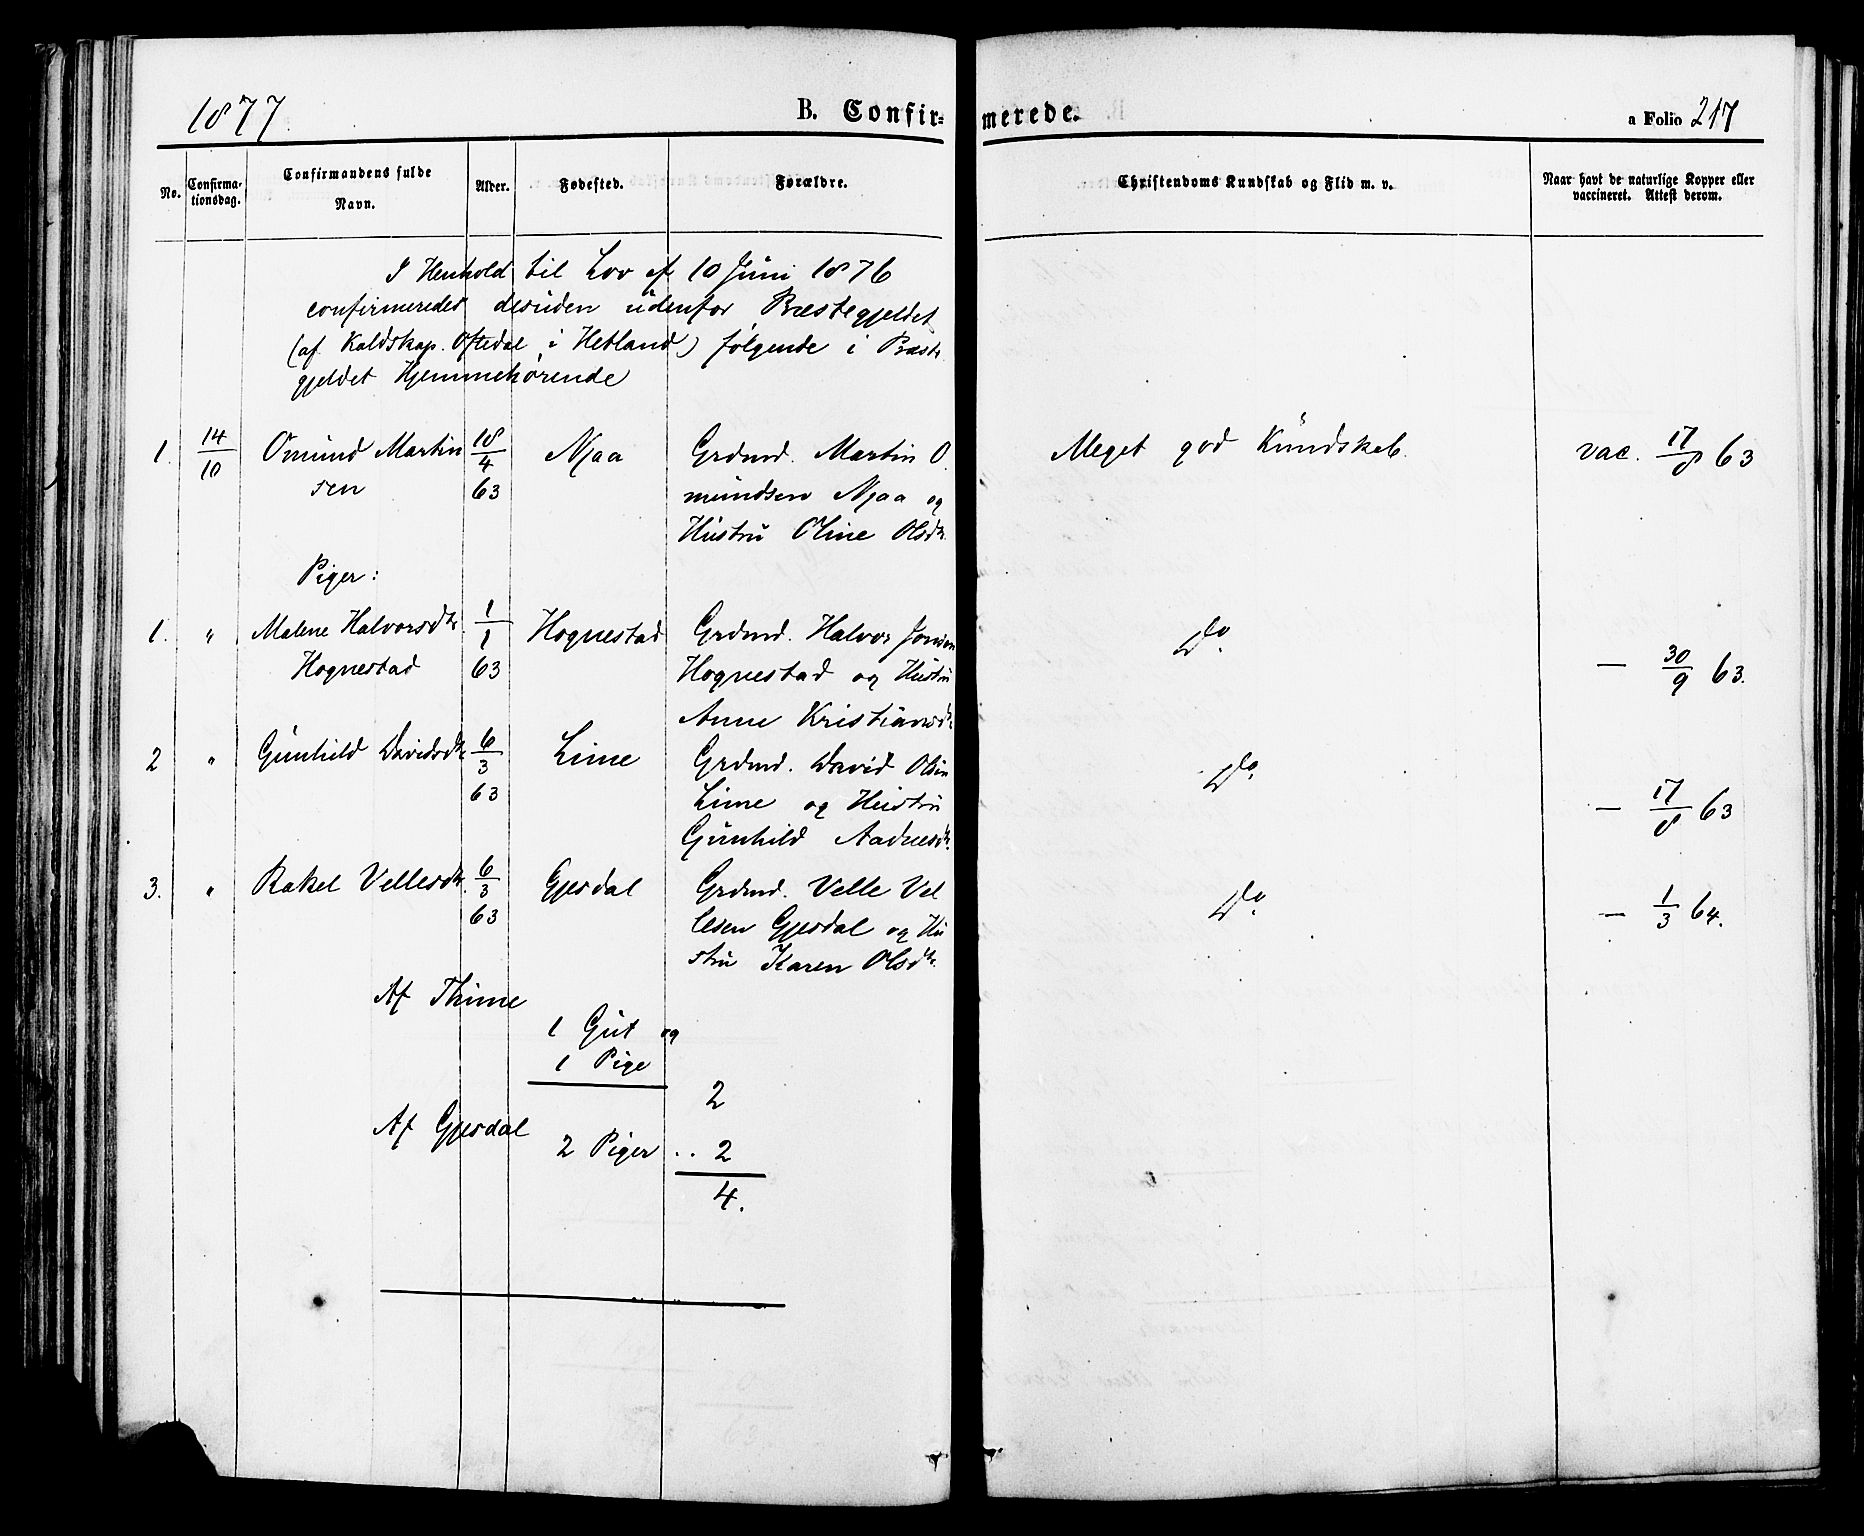 1877. B. Confir= merede. a Folio 217
No. Confirma-tionsdag. Confirmandens fulde Navn. Alder. Fødested. Forældre. Christendoms Kundskab og Flid m. v. Naar havt de naturlige Kopper eller vaccineret. Attest derom.
I Henhold til Lov af 10 Juni 1876
confirmeredes desuden udenfor Præstegjeldet
(af Kaldskap. Oftedal i Hetland) følgende i Præste
gjeldet Hjemmehørende
1. 14/10 Omund Martin 18/4 Njaa Grdmd. Martin O Meget god Kundskab. vac. 17/8 63
sen 63 mundsen Njaa og
Hustru Oline Olsdtr.
Piger:
1. " Malene Halvorsdtr. 1/1 Hognestad Grdmd. Halvor Jonsen Do.
Hognestad 63 Hognestad og Hustru — 30/9 63.
Anne Kristiansdtr.
2 " Gunhild Davidsdtr. 6/3 Lime Grdmd. David Olsen Do.
63 Lime og Hustru — 17/8 63
Gunhild Aadnesdtr.
3. " Rakel Vellesdtr. 6/3 Gjesdal Grdmd. Velle Vel Do. — 1/3 64.
63 lesen Gjesdal og Hu
stru Karen Olsdtr.
Af Thime
1 Gut og
1 Pige
2
Af Gjesdal
2 Piger .. 2
4.